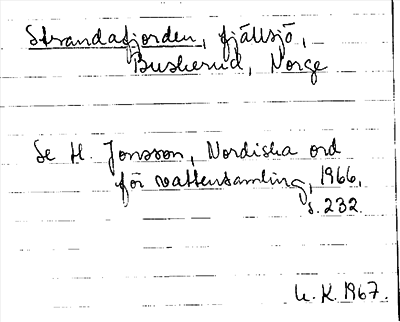 Strandafjorden, fjällsjö,
Buskerud, Norge
Se H. Jonsson, Nordiska ord
för vattensamling, 1966,
s. 232.
U. K. 1967.